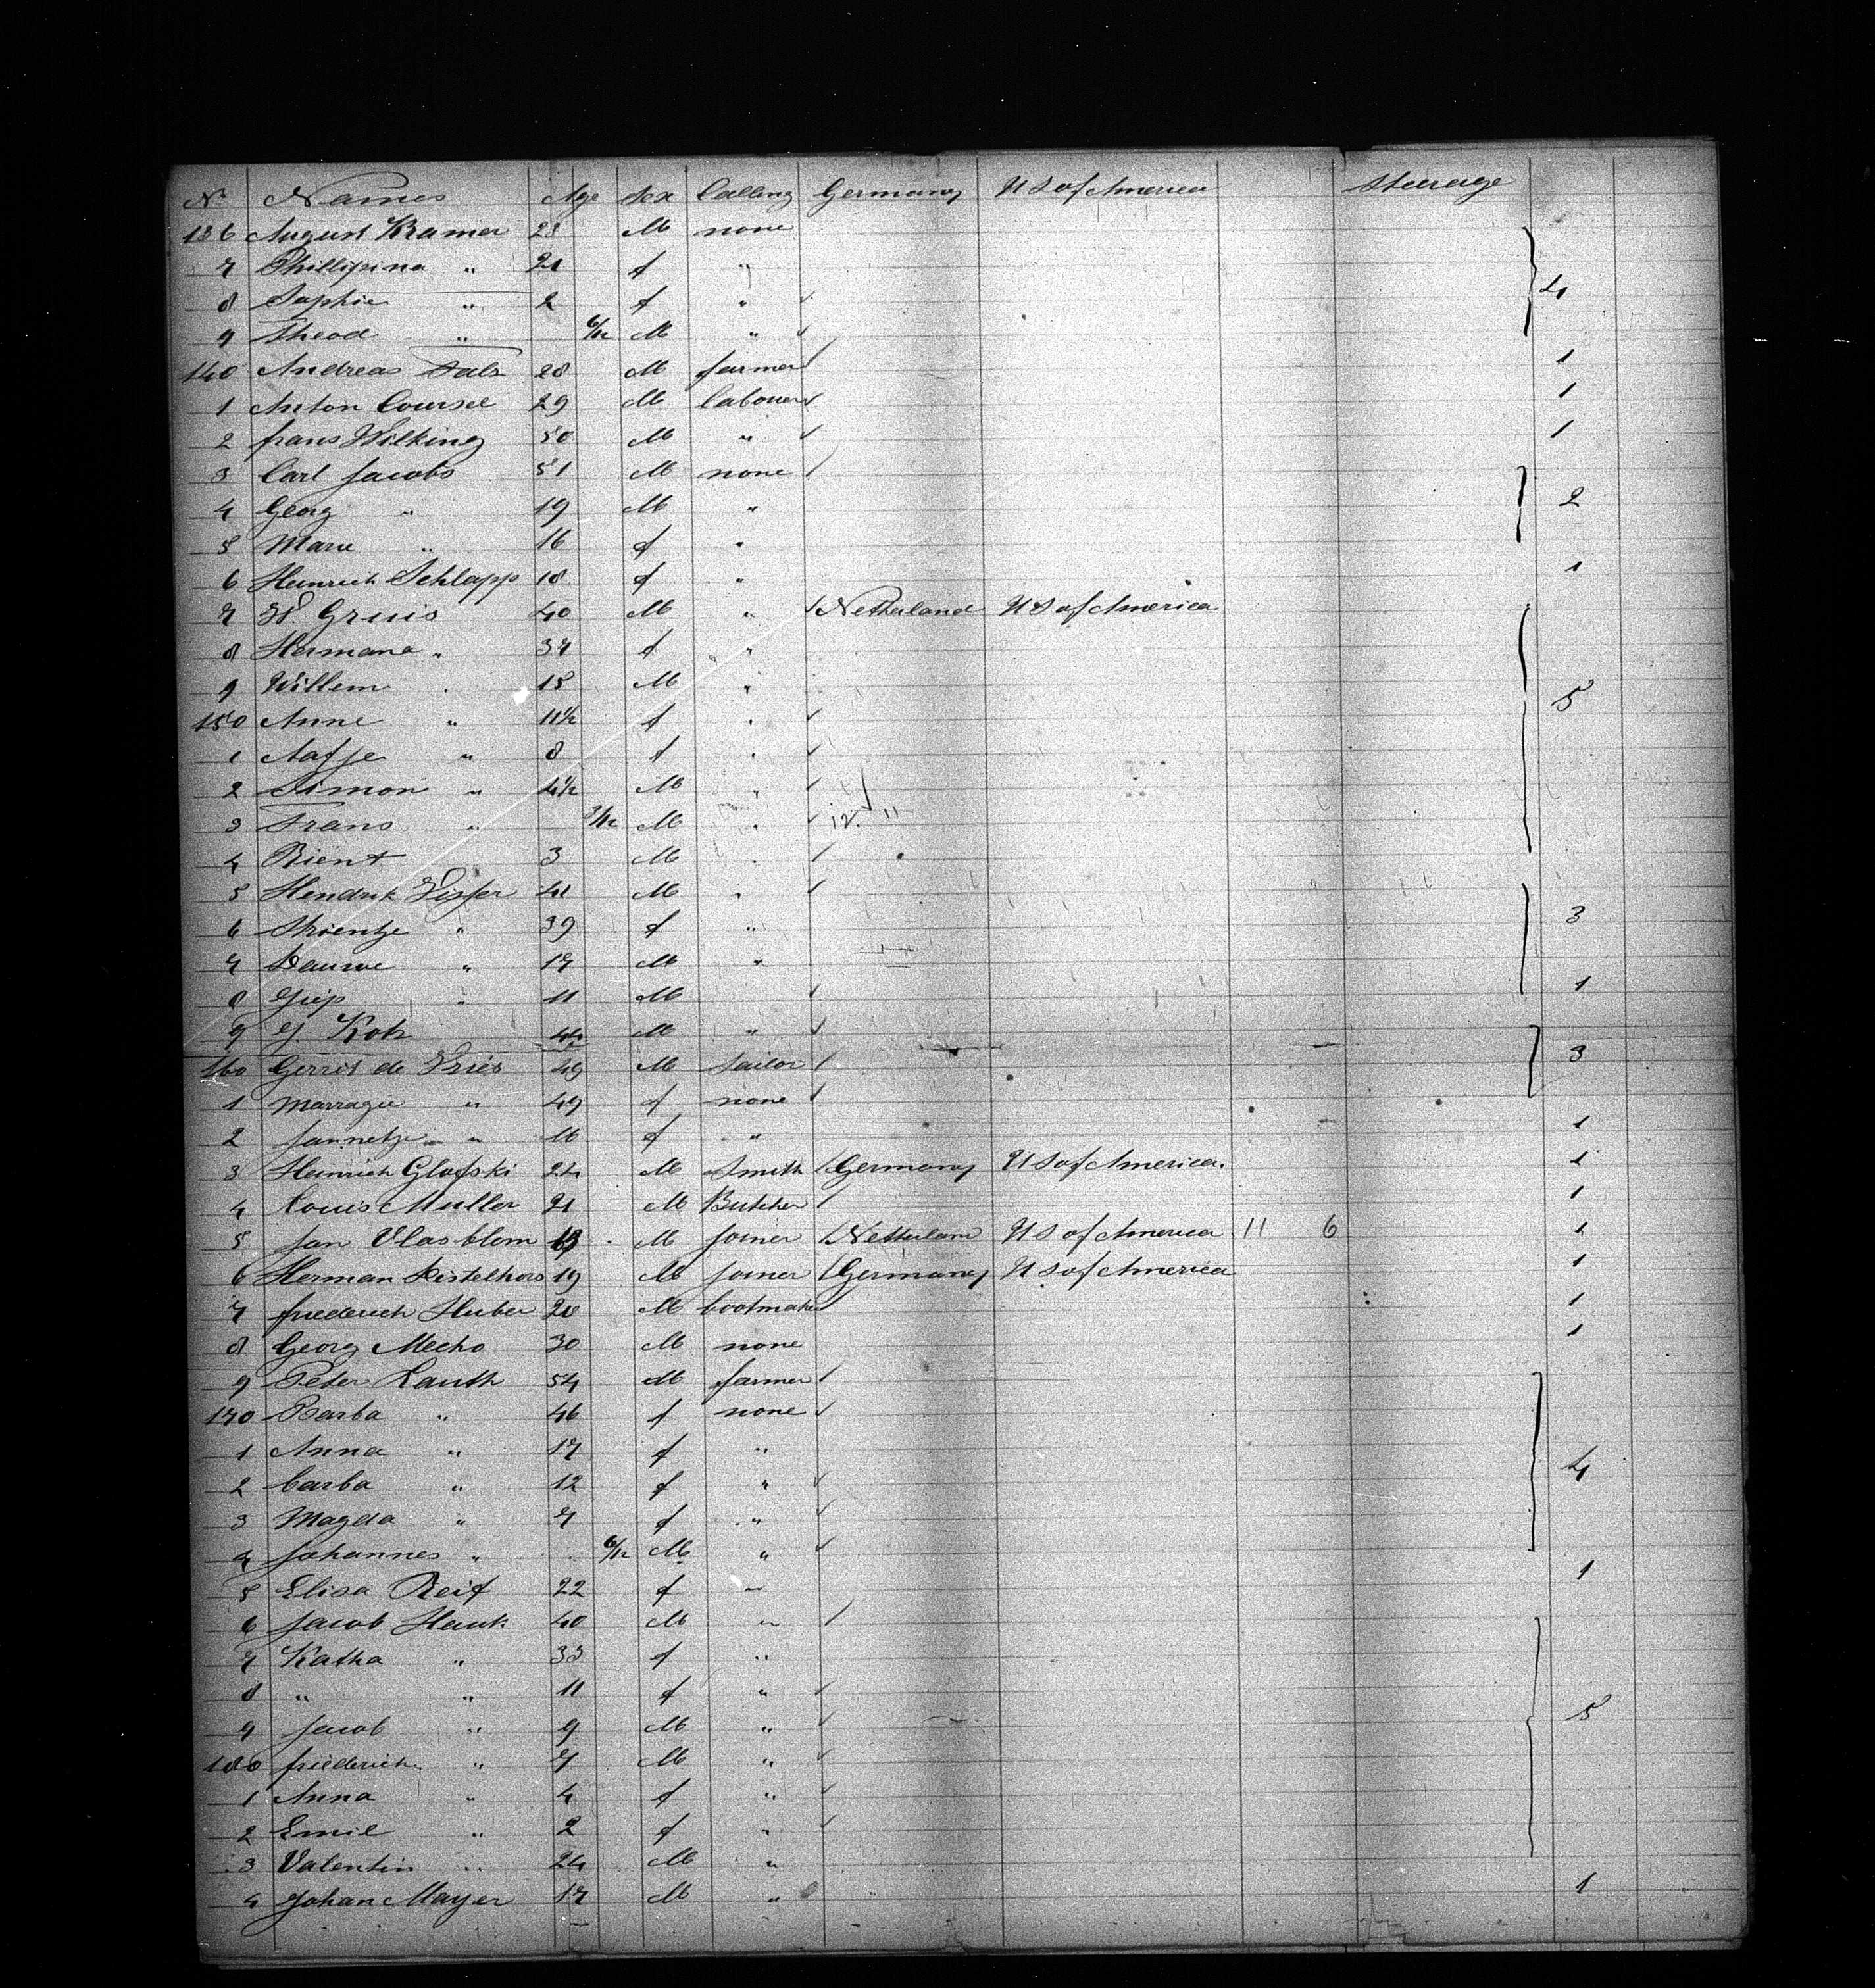 No Names Age Sex Calling Germany U S of America Steerage
136 August Kramer 28 M none
7 Phillipina " 21 f "
8 Sophie " 2 f " 4
9 Theod " 6/12 M "
140 Andreas 28 M farmer 1
1 Anton Coursee 29 M labouer 1
2 frans Wilking 50 M " 1
3 Carl Jacobs 51 M none
4 Georg " 19 M " 2
5 Marie " 16 f "
6 Heinrich Schlapp 18 f " 1
7 Gruis 40 M " Netherland U S of America
8 Hermana " 37 f "
9 Willem " 15 M " 5
150 Anne " 11½ f "
1 Aafje " 8 f "
2 Simon " 4½ M "
3 Frans " 3/12 M " 12 11
4 Rient 3 M "
5 Hendrik Visser 41 M "
6 Trientje " 39 f " 3
7 Dauwe " 17 M "
8 " 11 M 1
9 J. Kok 44 M "
160 Gerrit de Vries 49 M Sailor 3
1 Marragie " 49 f none
2 Jannetje " f " 1
3 Heinrich Glofski 24 M Smith Germany U S of America. 1
4 Louis Muller 21 M Butcher 1
5 Jan Vlasblom M Joiner Netherland U S of America 11 6 1
6 Herman Kistelhors 19 M Joiner Germany U S of America 1
7 friederich Huber 28 M bootmaker 1
8 Georg Mecho 30 M none 1
9 Peter Lauth 54 M farmer
170 Barba " 46 f none
1 Anna " 17 f " 4
2 Carba " 12 f "
3 Magda " 7 f "
4 Johannes " 6/12 M "
5 Elisa Reif 22 f " 1
6 Jacob Hauk 40 M "
7 Katha " 33 f "
8 " " 11 f "
9 Jacob " 9 M " 5
180 friederich " 7 M "
1 Anna " 4 f "
2 Emil " 2 f "
3 Valentin " 24 M "
4 Johan Mayer 17 M " 1